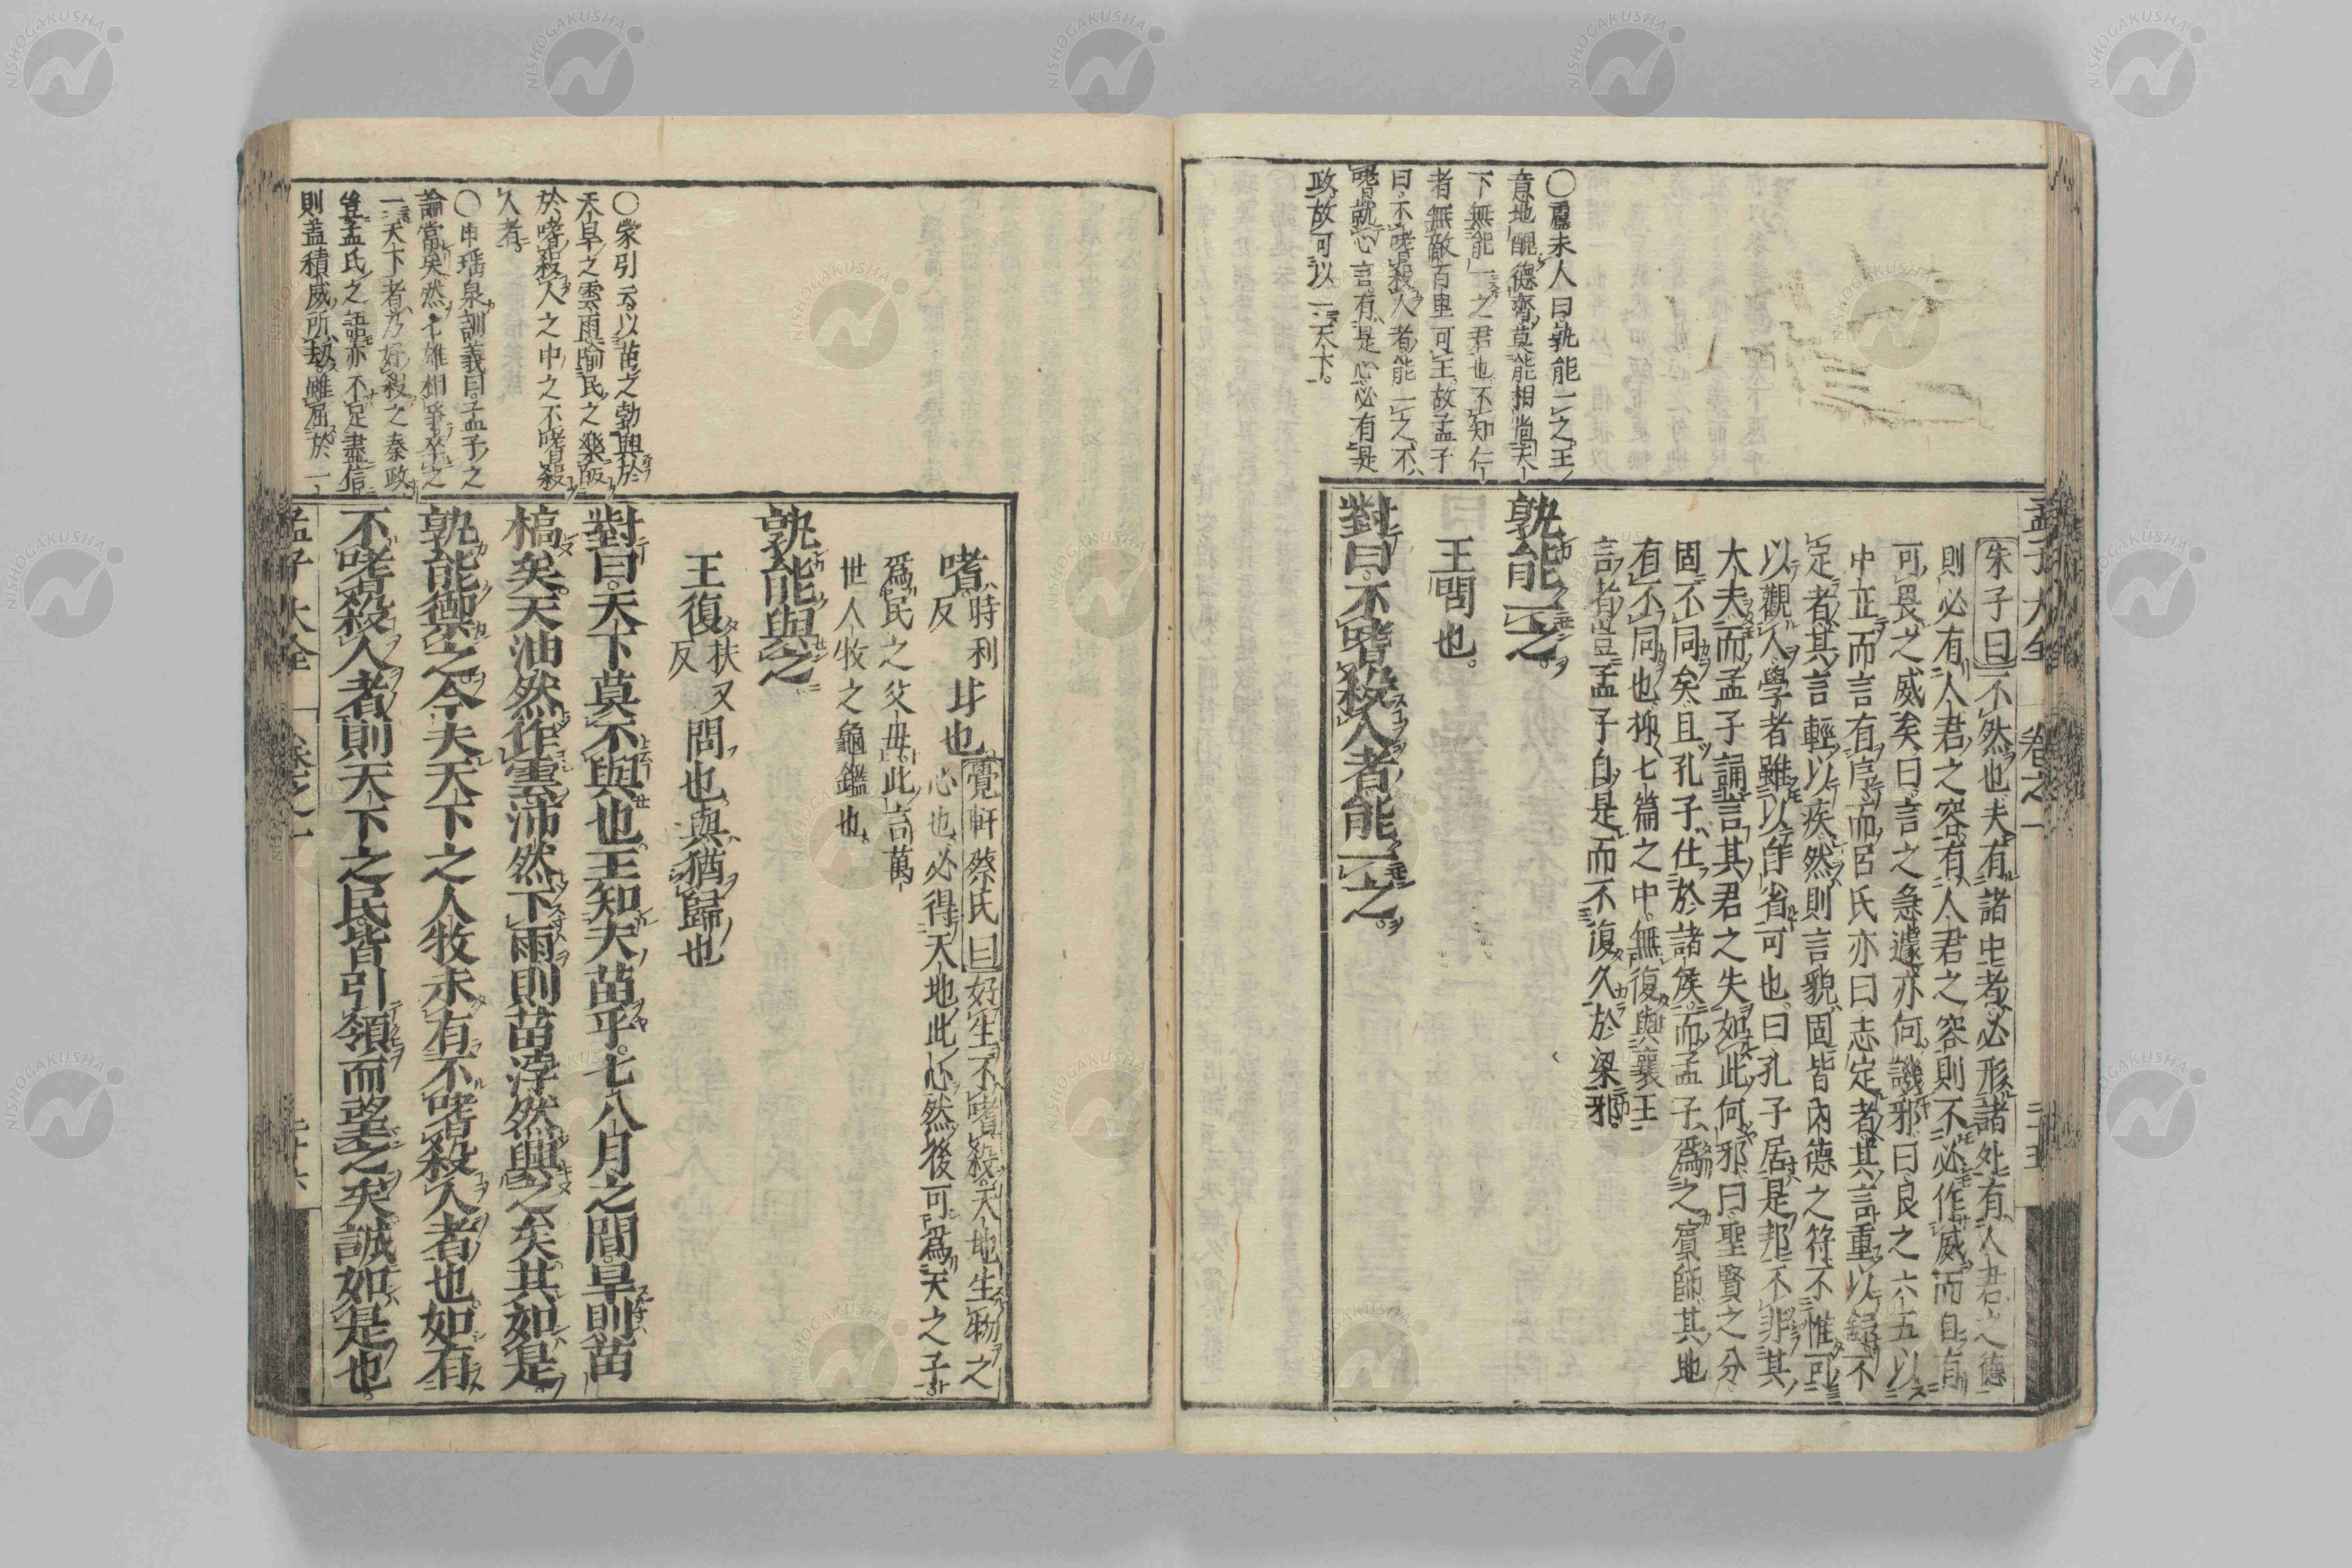 孟子大全 卷之一 二十五
朱子曰不然也夫有諸中者必形諸外有人君之德
則必有人君之容有人君之容則不必作威而自有
可畏之威矣曰言之急遽亦何譏邪曰艮之六五以
中正而言有序而呂氏亦曰志定者其言重以舒不
定者其言輕以疾然則言貌固皆內德之符不惟可
以觀人學者雖以自省可也曰孔子居是邦不非其
大夫而孟子誦言其君之失如此何邪曰聖賢之分
固不同矣且孔子仕於諸侯而孟子爲之賓師其地
有不同也抑七篇之中無復與襄王
言者豈孟子自是而不復久於梁邪
孰能一之
王問也
對曰不嗜殺人者能一之
○盧未人曰孰能一之王
意地醜德齊莫能相尚天
下無能一之君也不知仁
者無敵百里可王故孟子
曰不嗜殺人者能一之不
嗜就心言有是心必有是
政故可以一天下
嗜時利反甘也覺軒蔡氏曰好生不嗜殺天地生物之
心也必得天地此心然後可爲天之子
爲民之父母此言萬
世人牧之龜鑑也
孰能與之
王復扶又反問也與猶歸也
對曰天下莫不與也王知夫苗乎七八月之間旱則苗
槁矣天油然作雲沛然下雨則苗浡然興之矣其如是
孰能禦之今夫天下之人牧未有不嗜殺人者也如有
不嗜殺人者則天下之民皆引領而望之矣誠如是也
○蒙引云以苗之勃興於
天旱之雲雨喻民之樂皈
於嗜殺人之中之不嗜殺
人者
○申瑤泉訓義曰孟子之
論當矣然七雄相爭卒之
一天下者乃好殺之秦政
豈孟氏之語亦不足盡信
則蓋積威所刼雖屈於一
孟子大全 卷之一 二十六